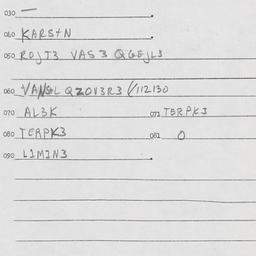 030 —
040 KARStN
050 ROJT3 VAS3 QGEJL3
060 VANGL QZOV3R3 112130
070 AL3K 071 TERPK3
080 TERPK3 081 O
090 LIMIN3